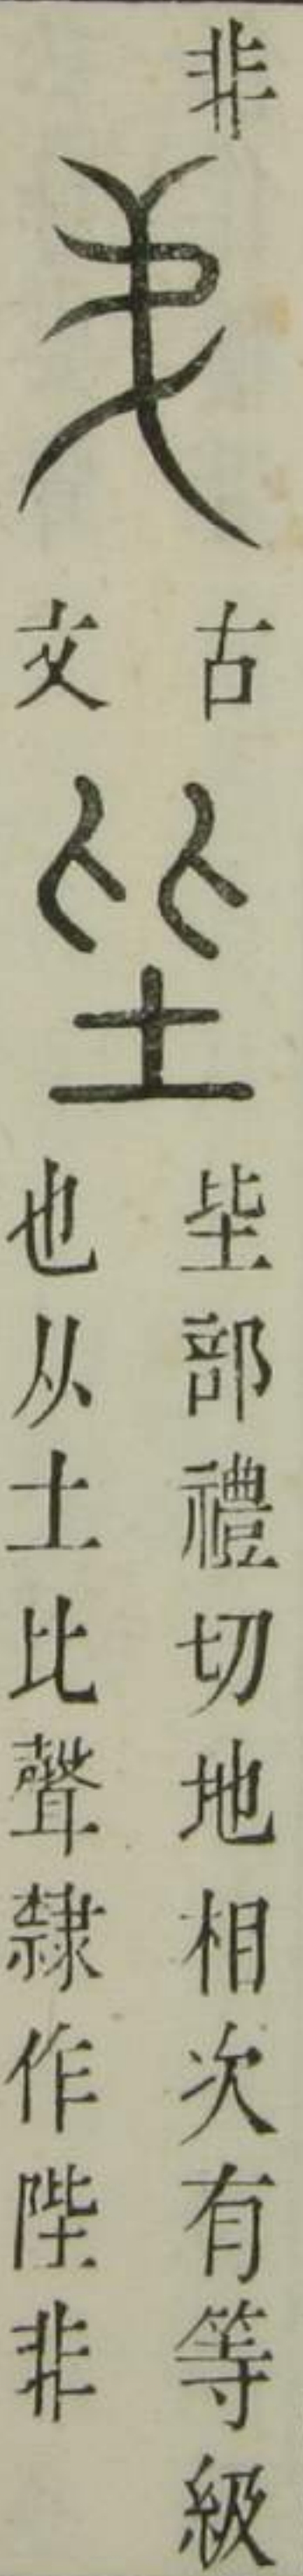 非
古文
坒部禮切地相次有等級
也从土比聲隸作陛非